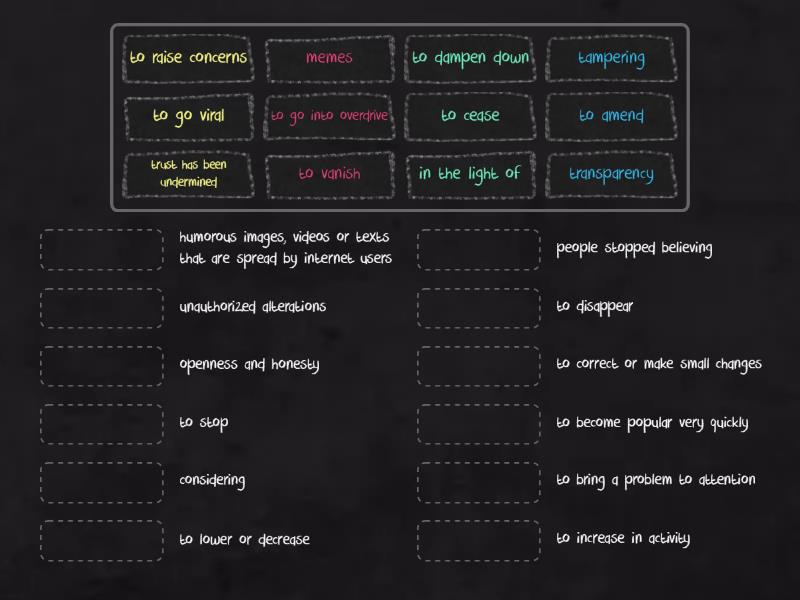 to raise concerns
memes
to dampen down
tampering
to go viral
to go into overdrive
to cease
to amend
trust has been
undermined
to vanish
in the light of
transparency
humorous images, videos or texts
that are spread by internet users
people stopped believing
unauthorized alterations
to disappear
openness and honesty
to correct or make small changes
to stop
to become popular very quickly
considering
to bring a problem to attention
to lower or decrease
to increase in activity